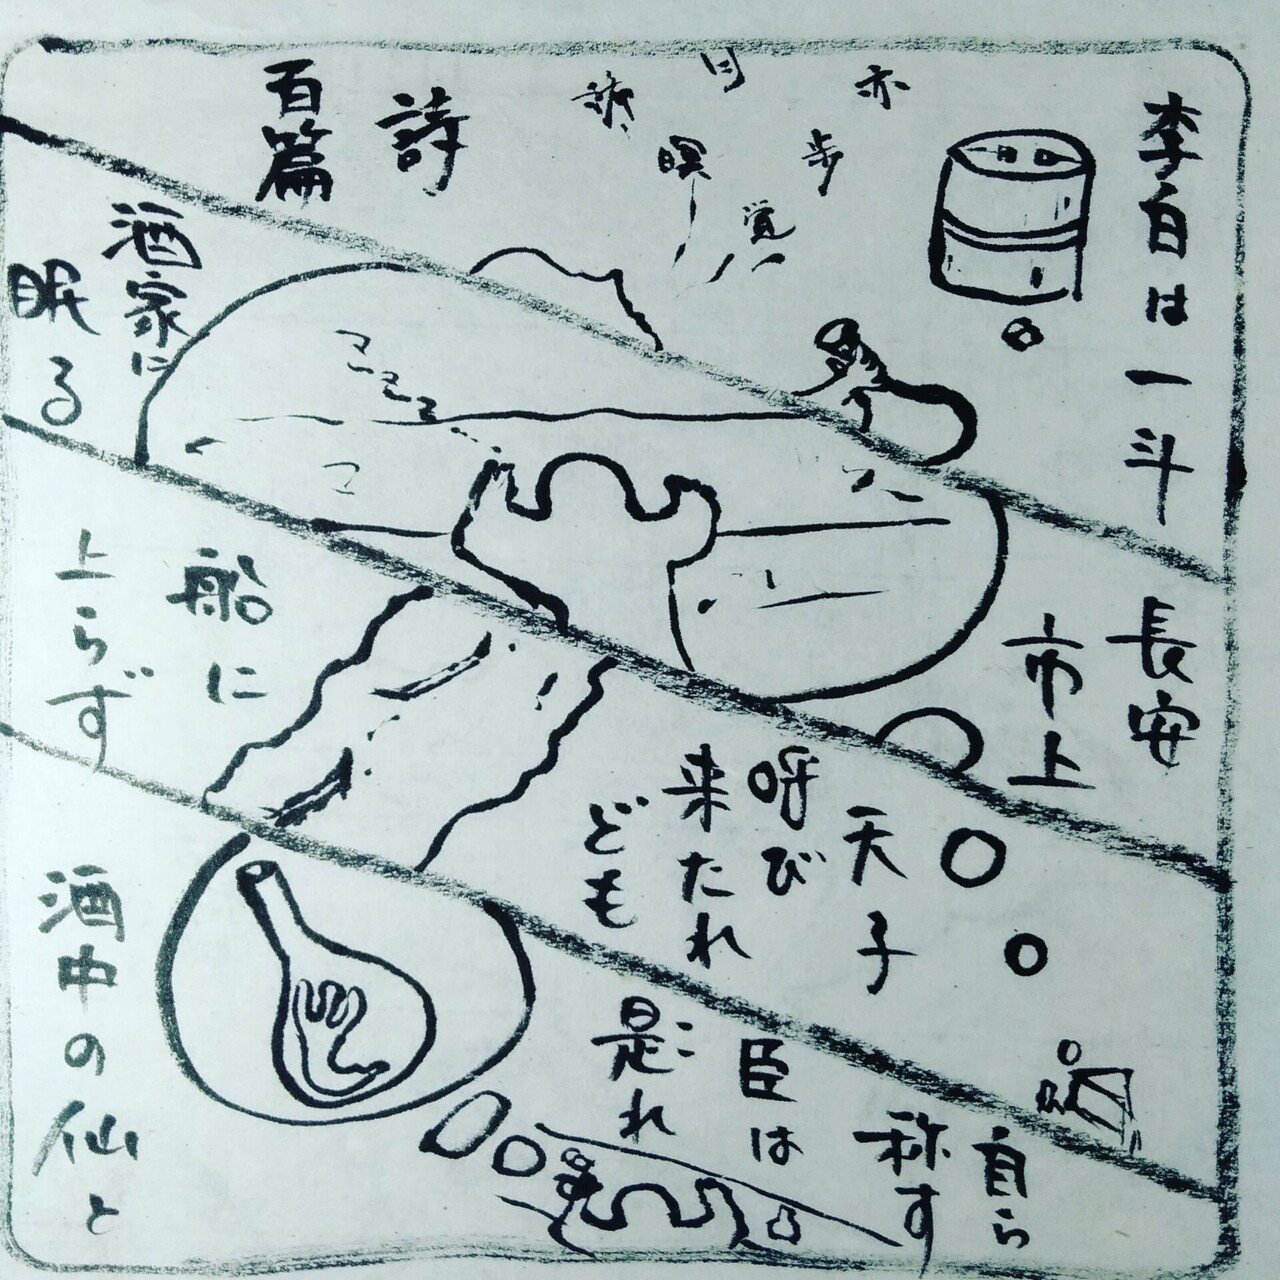 李白は一斗
詩
百篇
亦
歩
覚
瞑
長安
市上
酒家に
眠る
天子
呼び
来たれ
ども
船に
上らず
自ら
称す
臣は
是れ
こ
酒中の仙と